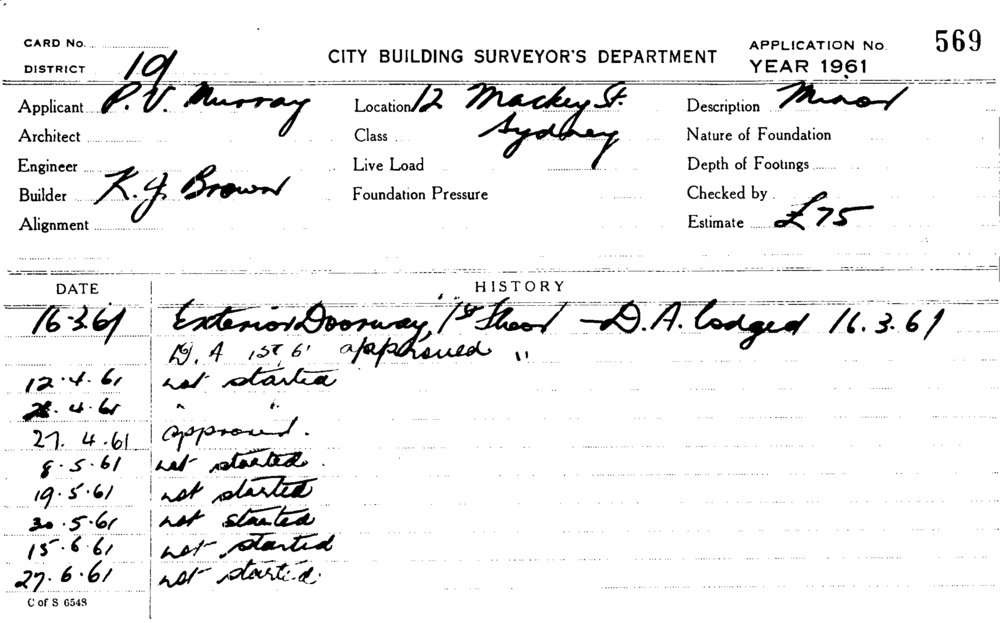 CARD No.
CITY BUILDING SURVEYOR'S DEPARTMENT
APPLICATION No. 569
DISTRICT 19
YEAR 1961
Applicant P. V. Murray
Location 12 Mackey St.
Sydney
Description Minor
Architect
Class
Nature of Foundation
Engineer
Live Load
Depth of Footings
Builder K. J. Brown
Foundation Pressure
Checked by
Alignment
Estimate £75
DATE HISTORY
16.3.61 Exterior Doorway, 1st Floor - D.A. lodged 16.3.61
D. A approved "
12.4.61 not started
.4.61 " "
27.4.61 approved.
8.5.61 not started.
19.5.61 not started
30.5.61 not started
15.6.61 not started
27.6.61 not started.
C of S 6548